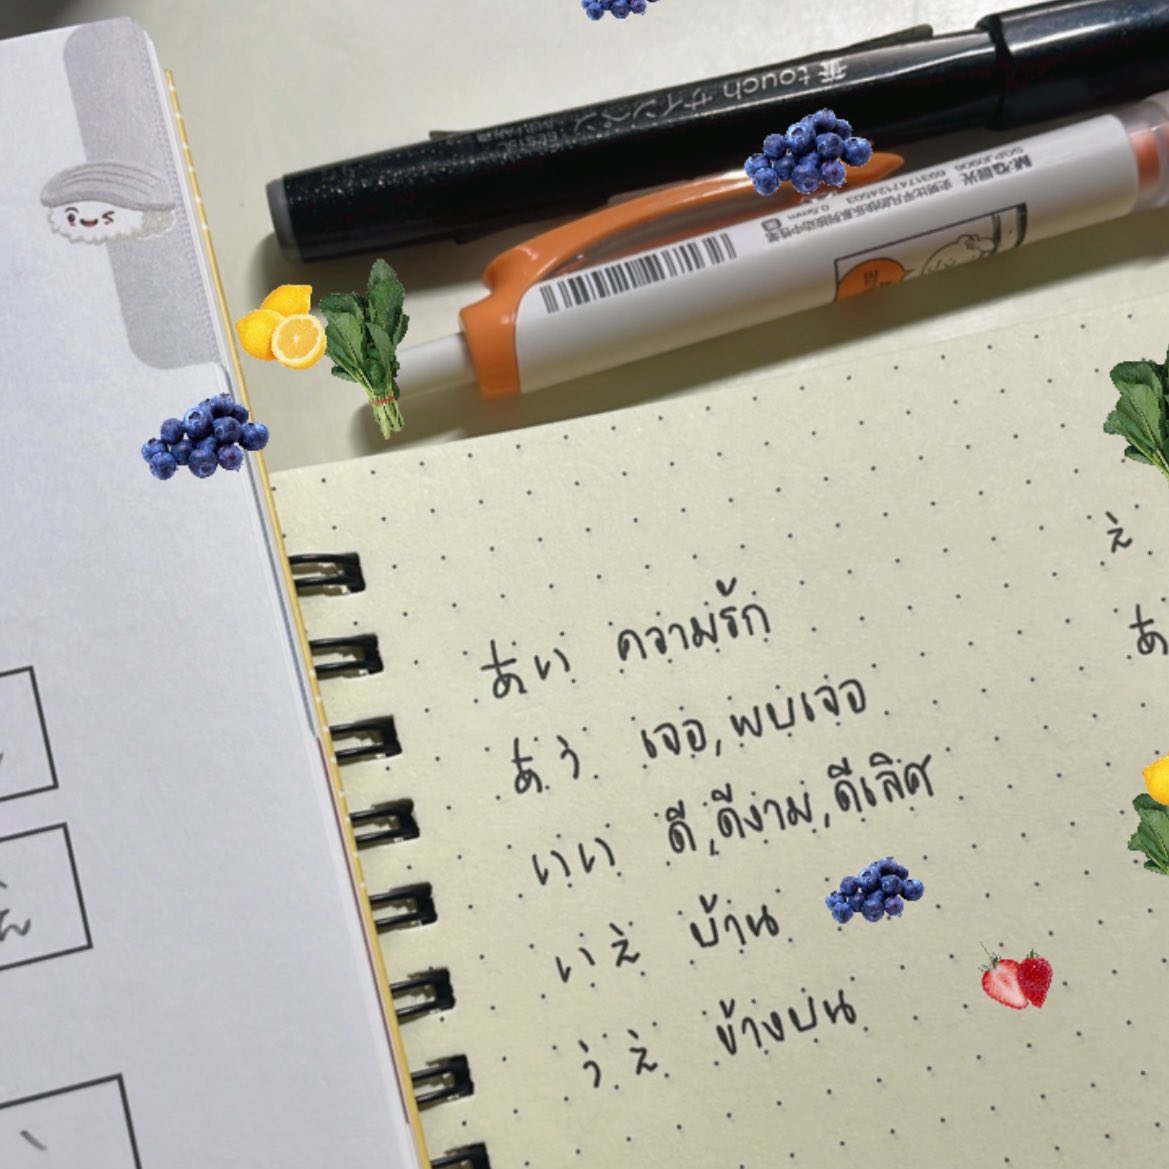 touch サインペン
M&G晨光
SGPJ0906 6931747124503 0.5mm
え
あ
あい ความรัก
あう เจอ,พบเจอ
いい ดี,ดีงาม,ดีเลิศ
いえ บ้าน
うえ ข้างบน